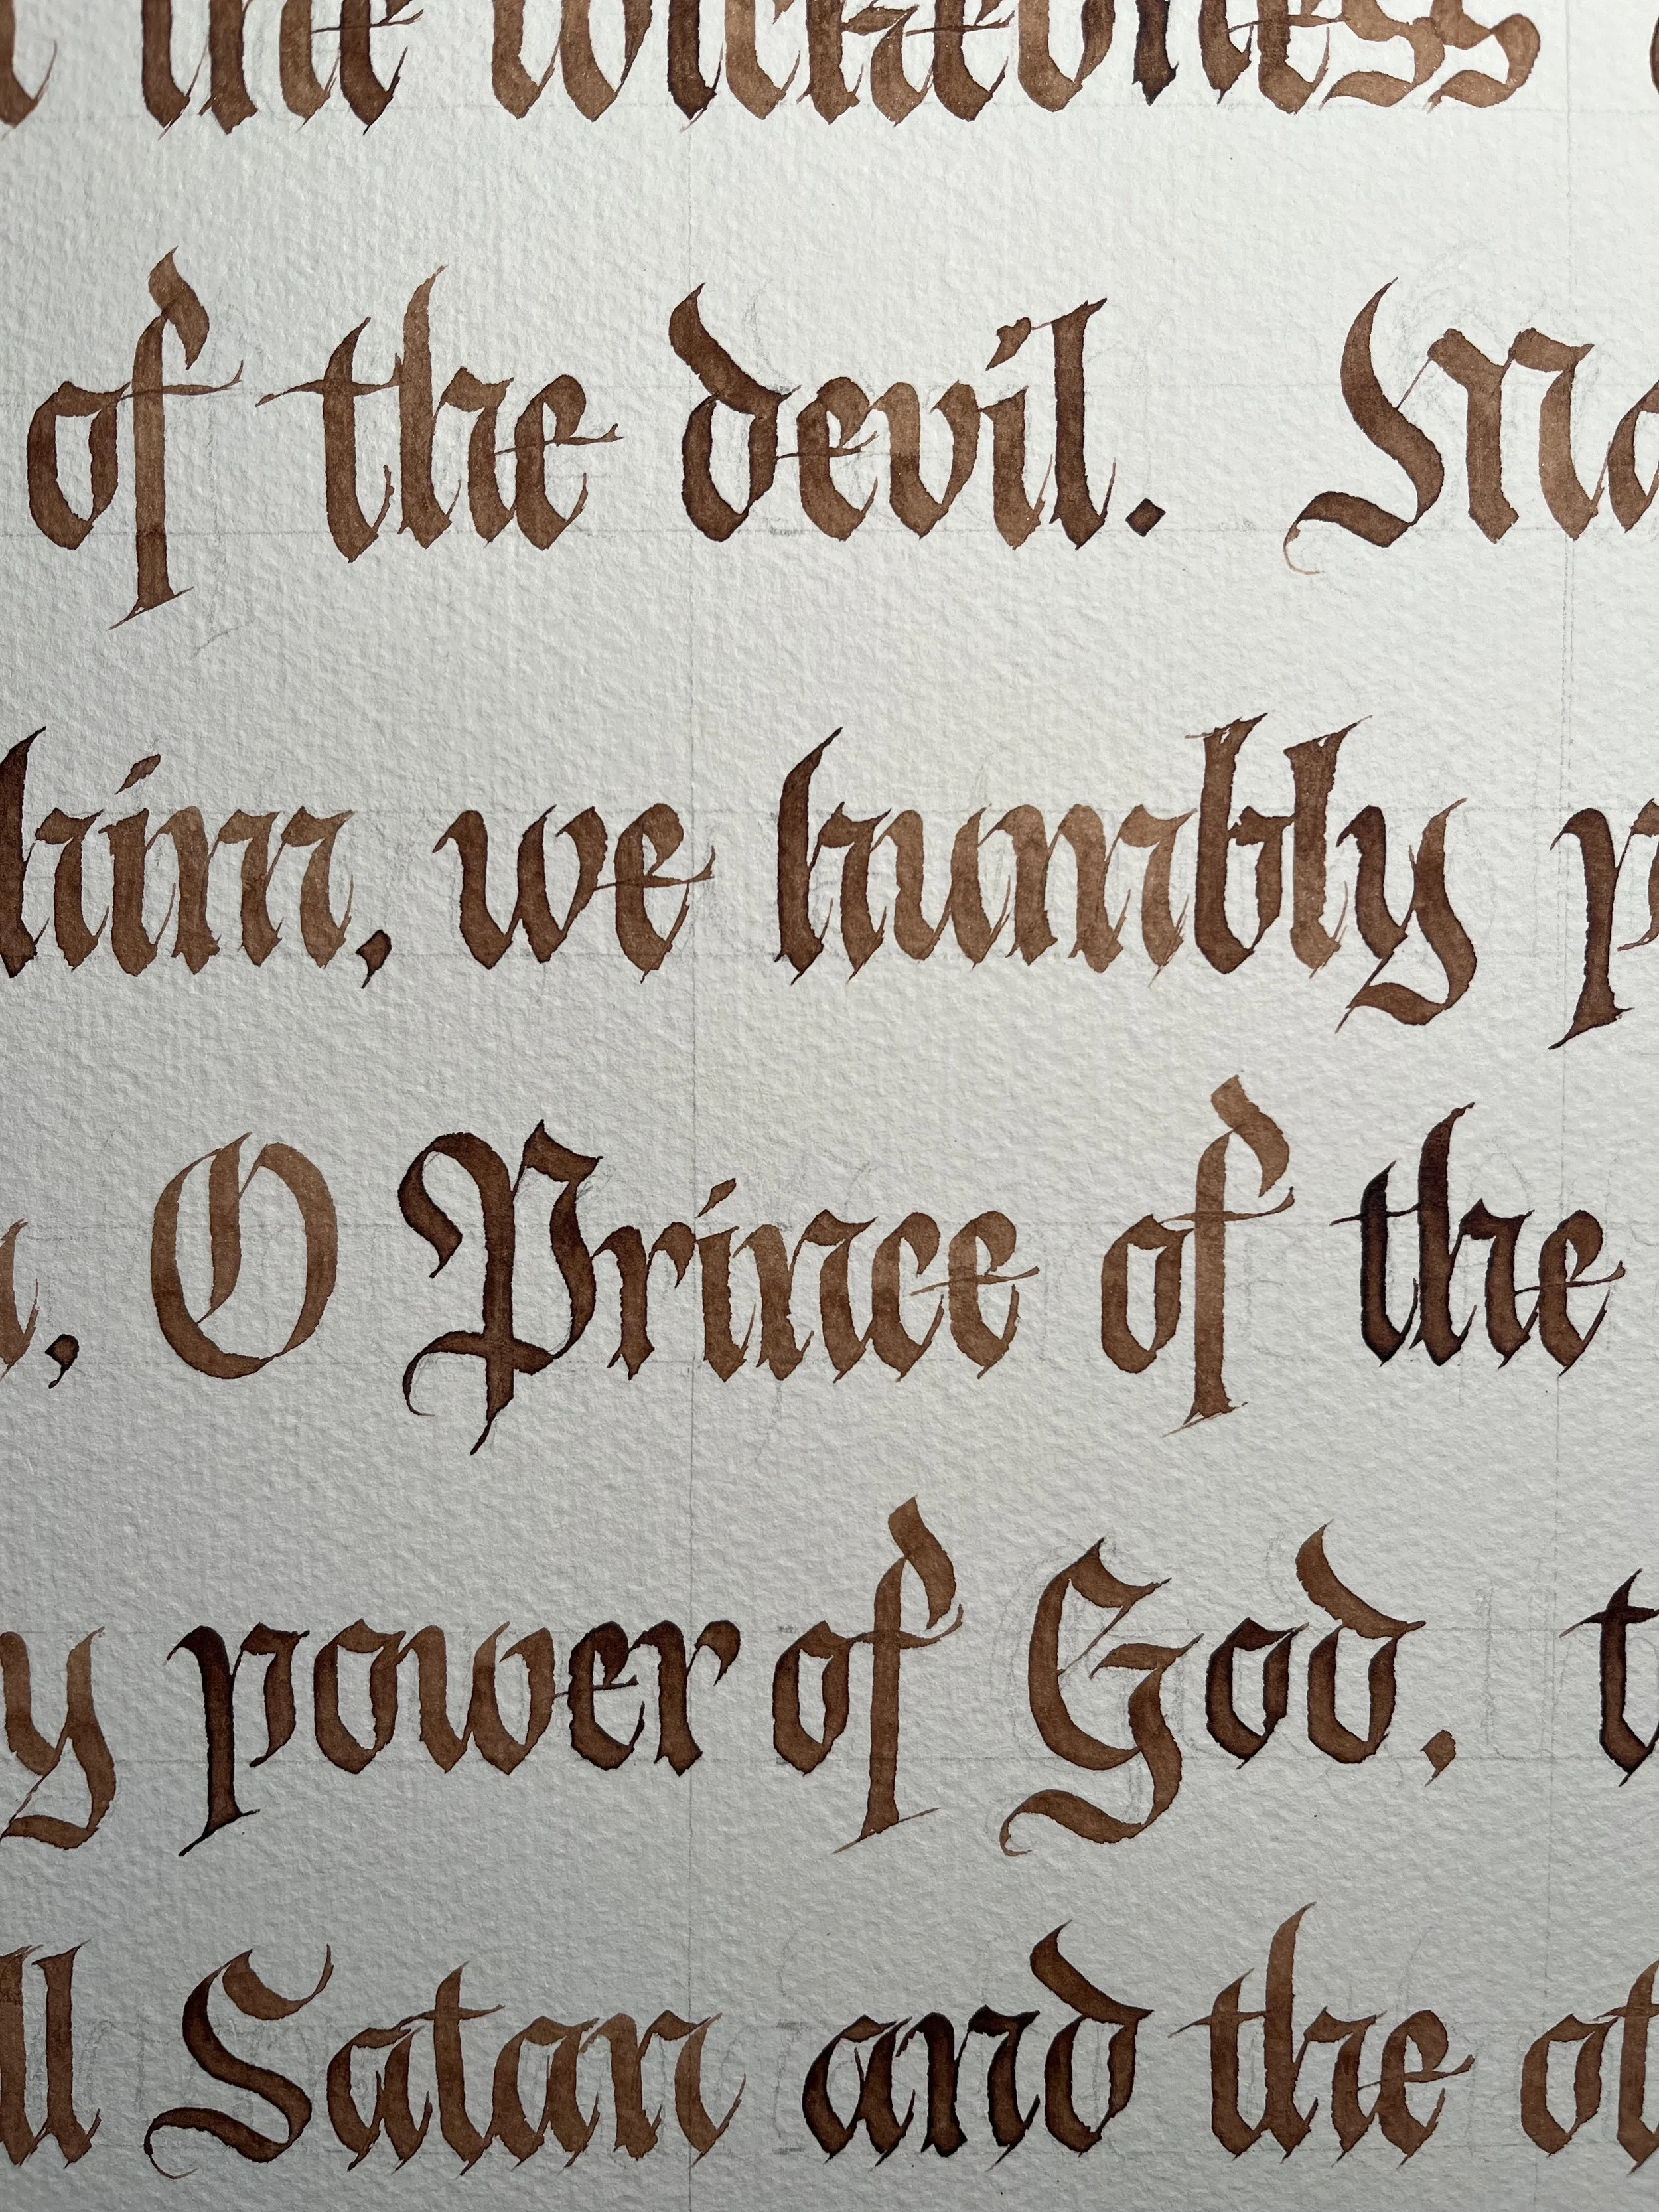 the wickedness
of the devil. Ma
him, we humbly p
, O Prince of the
y power of God, t
ll Satan and the ot